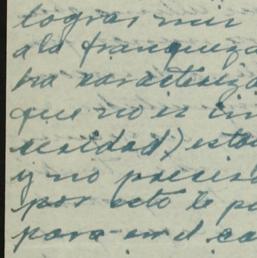 lograr mis
a la franqueza
ha caracteriza
que no es in
sidad) esto
y no precis
por esto le p
para en el ca